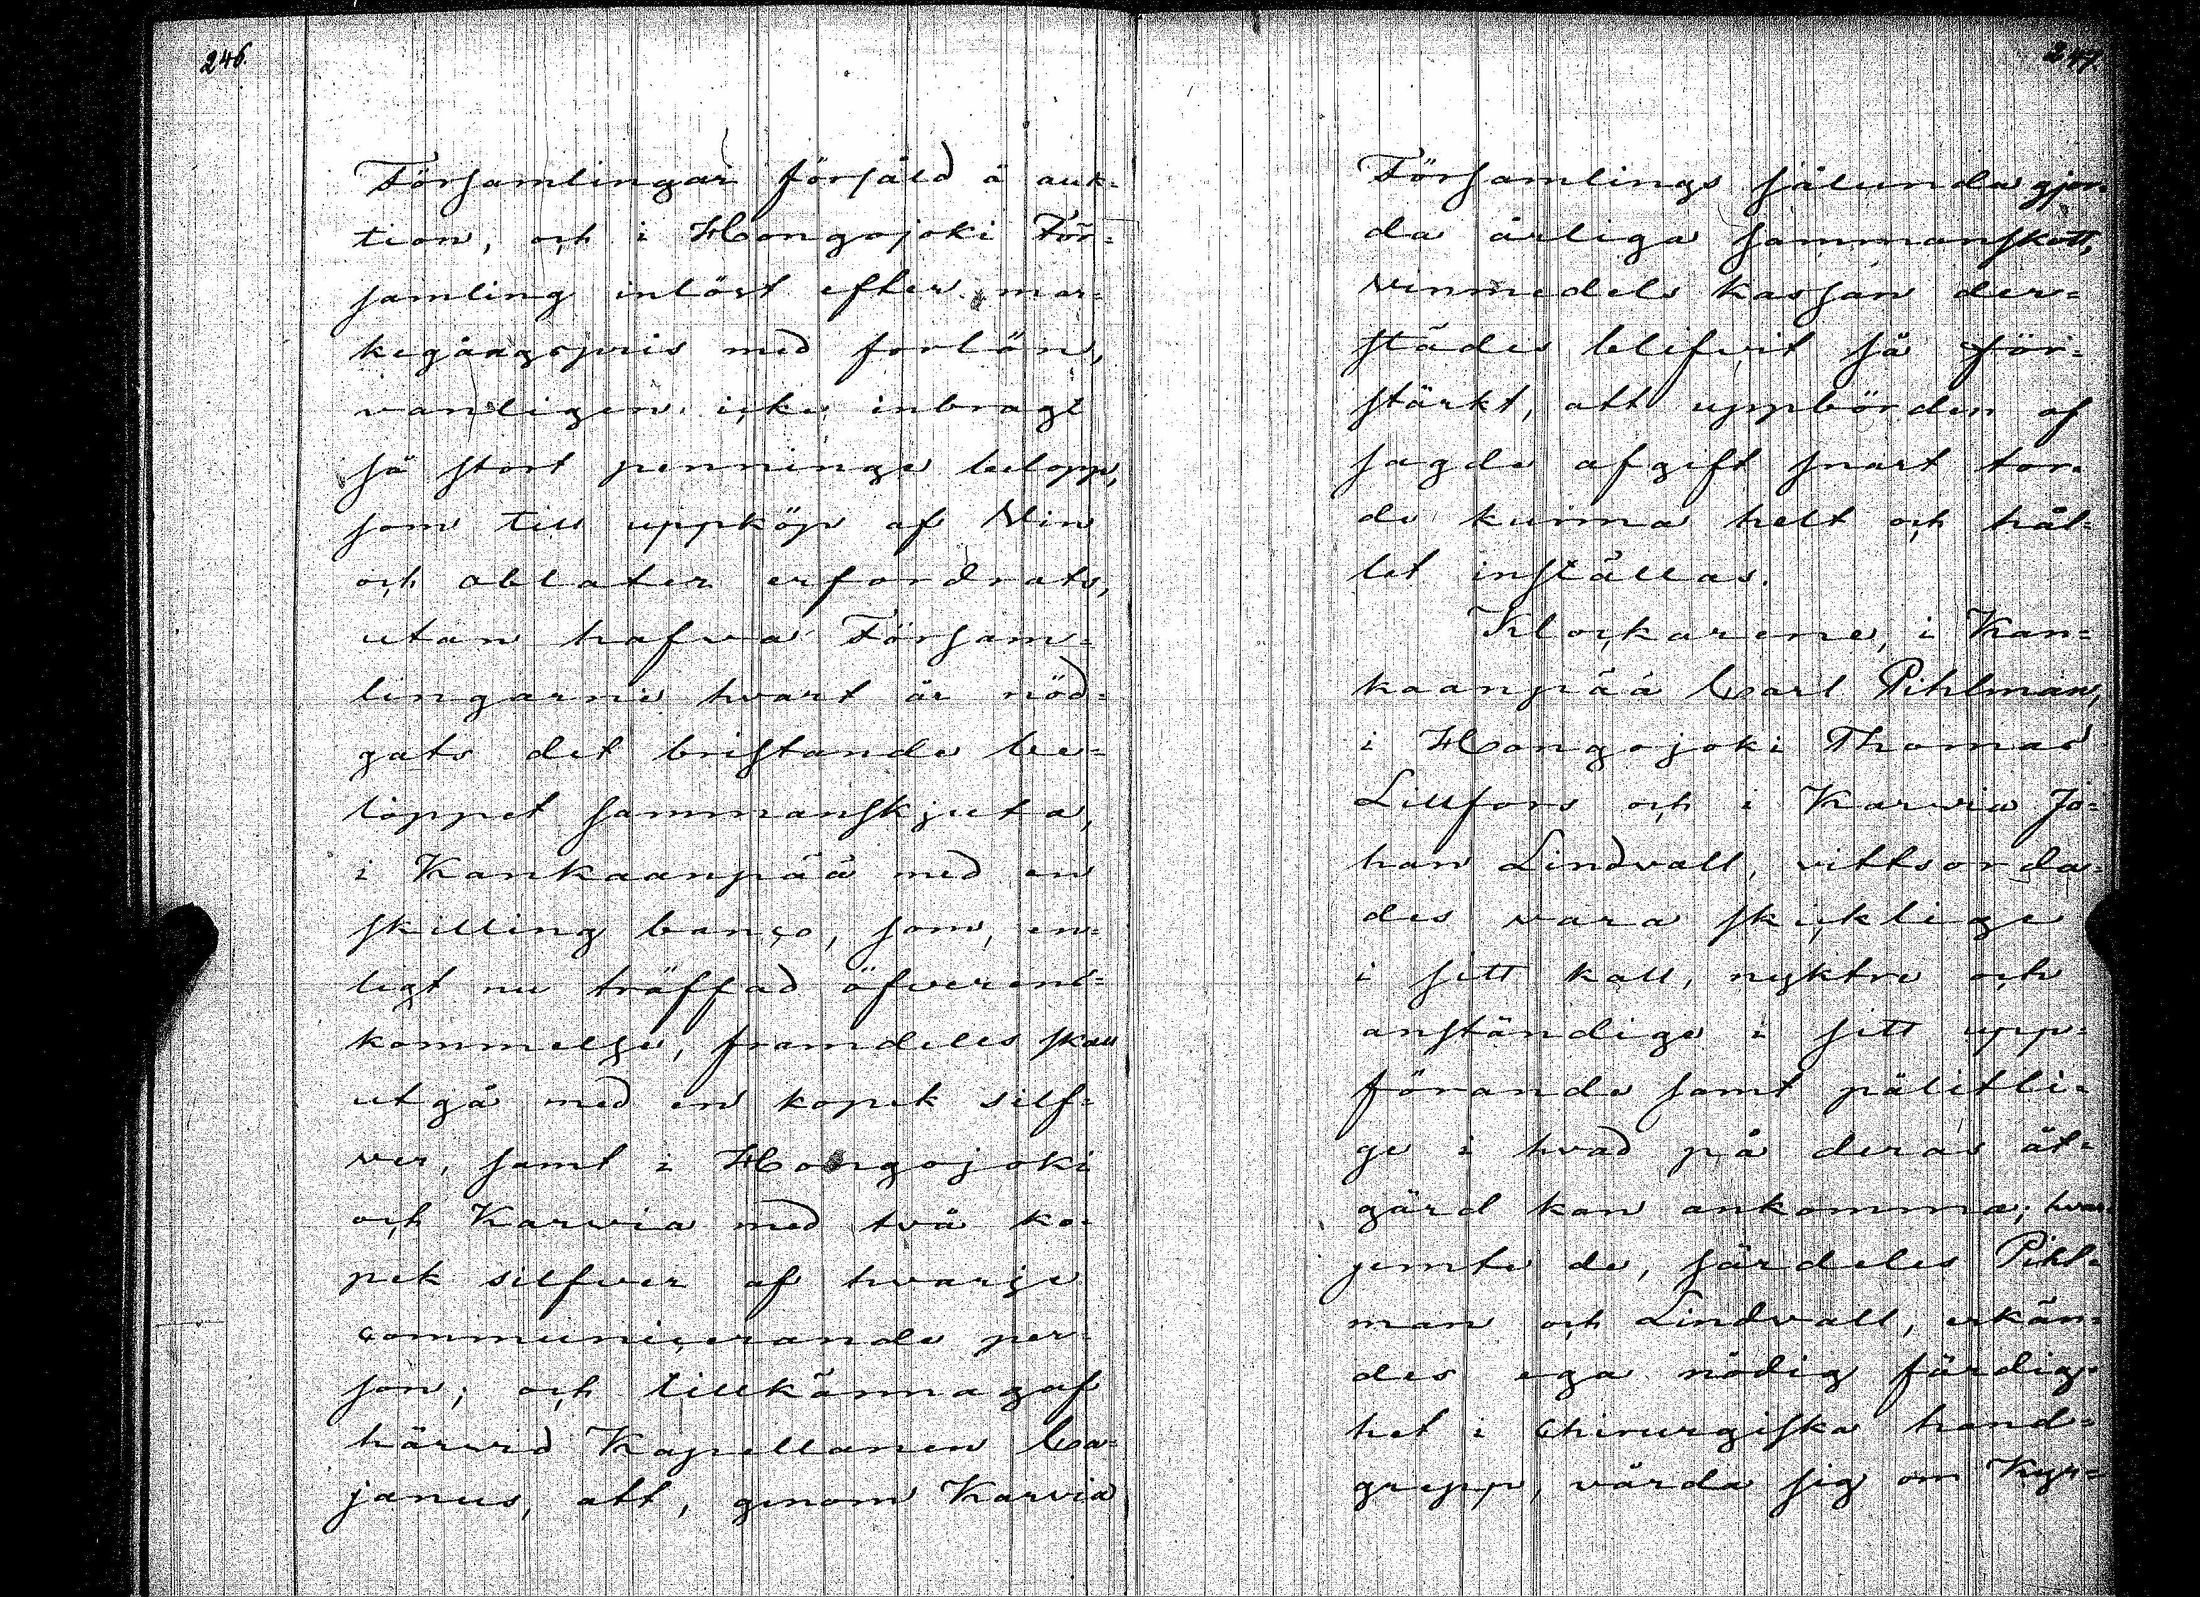 246.
Församlingar försåld å auk-
tion, och i Hongojoki För-
samling inlöst efter mar-
kegångspris med forlön,
vanligen icke inbragt
så stort penninge belopp,
som till uppköp af Vin
och oblater erfordrats,
utan hafva Försam-
lingarne hvart år nöd-
gats det bristande be-
loppet sammanskjuta,
i Kankaanpää med en
skilling banco, som, en-
ligt nu träffad öfverens-
kommelse, framdeles skall
utgå med en kopek silf-
ver, samt i Hongojoki
och Karvia med två ko-
pek silfver af hvarje
communicerande per-
son; och tillkännagaf
härvid Kapellanen Ca-
janus, att, genom Karvia
247.
Församlings sålunda gjor-
da årliga sammanskott,
vinmedels kassan der-
städes blifvit så för-
stärkt, att uppbörden af
sagde afgift snart tor-
de kunna helt och hål-
let inställas.
Klockarene, i Kan-
kaanpää Carl Pihlman,
i Hongojoki Thomas
Lillfors och i Karvia Jo-
han Lindvall, vittsorda-
des vara skicklige
i sitt kall, nyktre och
anständige i sitt upp-
förande samt pålitli-
ge i hvad på deras åt-
gärd kan ankomma; hvar-
jemte de, särdeles Pihl-
man och Lindvall, erkän-
des ega nödig färdig-
het i chirurgiska hand-
grepp, vårda sig om Kyr-